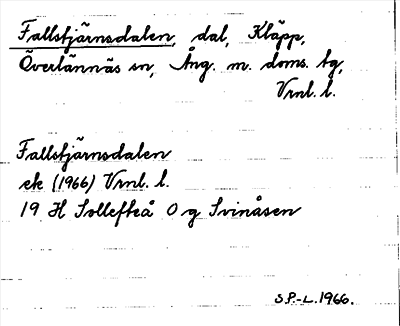 Fallstjärnsdalen, dal, Kläpp,
Överlännäs sn, Ång. m. doms. tg,
Vrnl. l.
Fallstjärnsdalen
ek (1966) Vrnl. l.
19 H Sollefteå O g Svinåsen
S.P.-L. 1966.